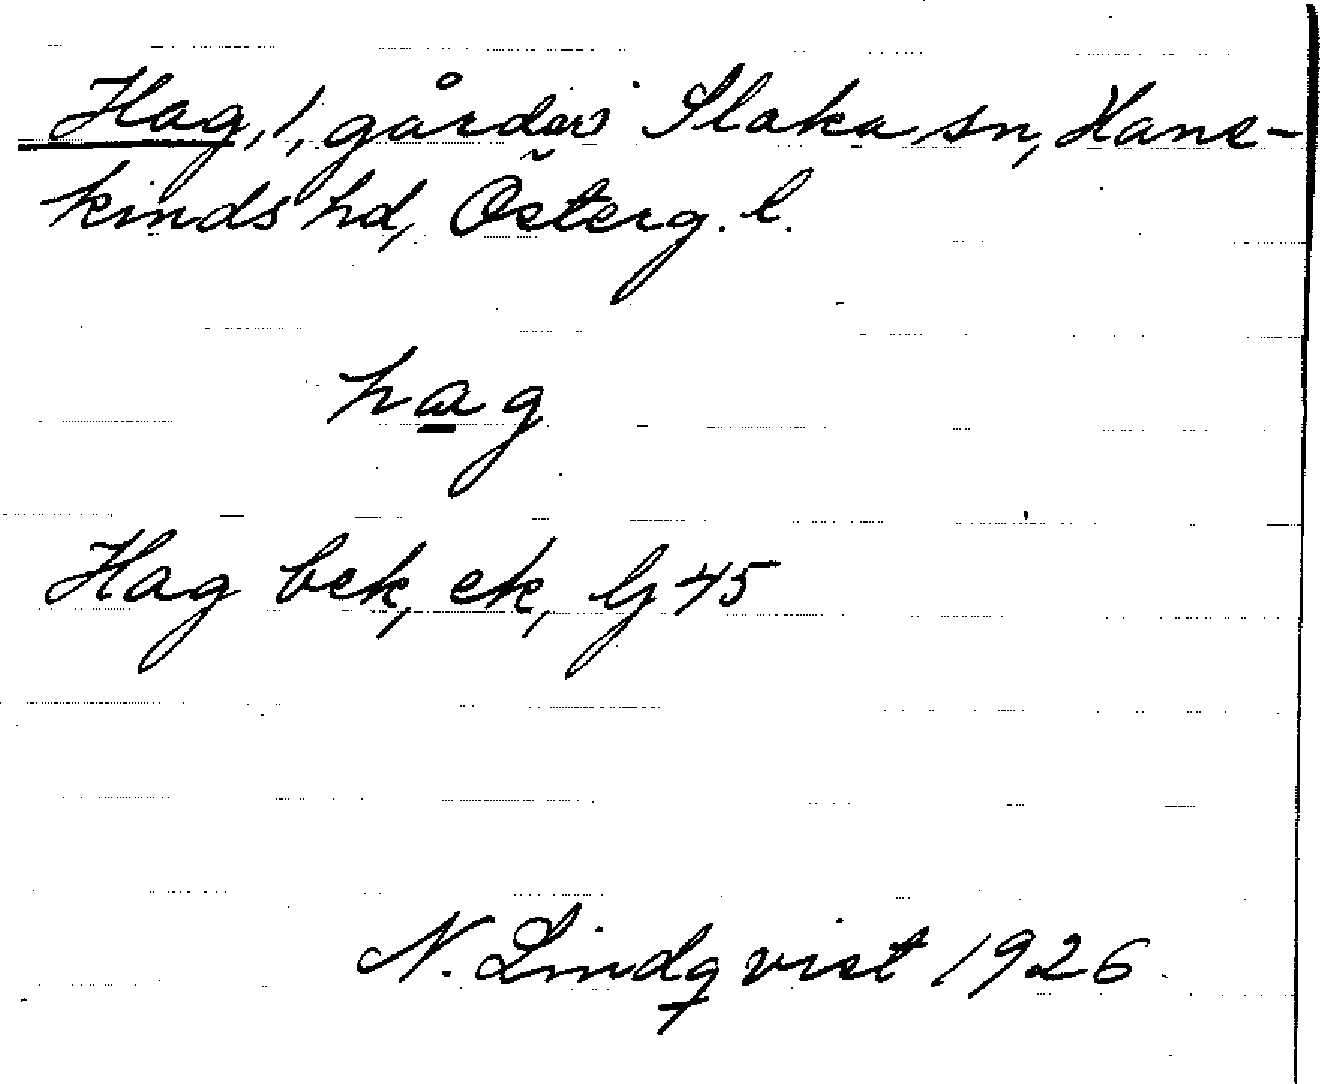 Hag, 1, gårdar i Slaka sn, Hane-
kinds hd, Österg. l.
hag
Hag bek, ek, lj 45
N. Lindqvist 1926